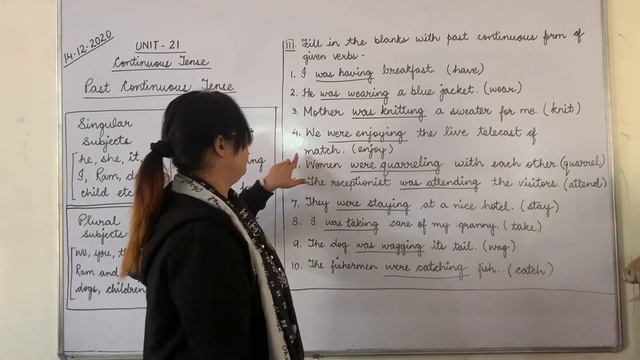 14-12-2020
UNIT - 21
Continuous Tense
Past Continuous Tense
Singular
Subjects
[he, she, it,
I, Ram, do
child etc
Plural
Subjects
[We, you, t
Ram and
dogs, children
III. Fill in the blanks with past continuous form of
given verbs -
1. I was having breakfast. (have)
2. He was wearing a blue jacket. (wear)
3. Mother was knitting a sweater for me. (knit)
4. We were enjoying the live telecast of
match. (enjoy)
Women were quarreling with each other. (quarrel)
The receptionist was attending the visitors. (attend)
7. They were staying at a nice hotel. (stay)
8. I was taking care of my granny. (take)
9. The dog was wagging its tail. (wag)
10. The fishermen were catching fish. (catch)